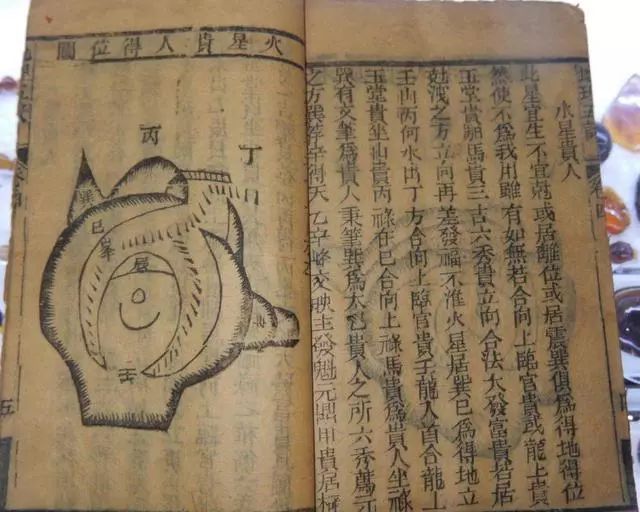 水星貴人
此星宜生不宜尅或居離位或居震巽俱爲得地得位
然使不爲我用雖有如無若合向上臨官貴或龍上貴
玉堂貴朝馬貴三吉六秀貴立向合法大發富貴若居
尅洩之方立向再差發福不准火星居巽巳爲得地立
壬山丙何水出丁方合向上臨官貴壬龍入首合龍上
玉堂貴坐山貴丙祿在巳合向上祿馬貴爲貴人坐祿
巽有文筆爲貴人秉筆巽爲太乙貴人之所六秀薦元
之方巽薦辛得天乙辛峰交映主發魁元鼎甲貴居極
火星貴人得位圖
丁
丙
巽
巳
峯
辰
壬
五